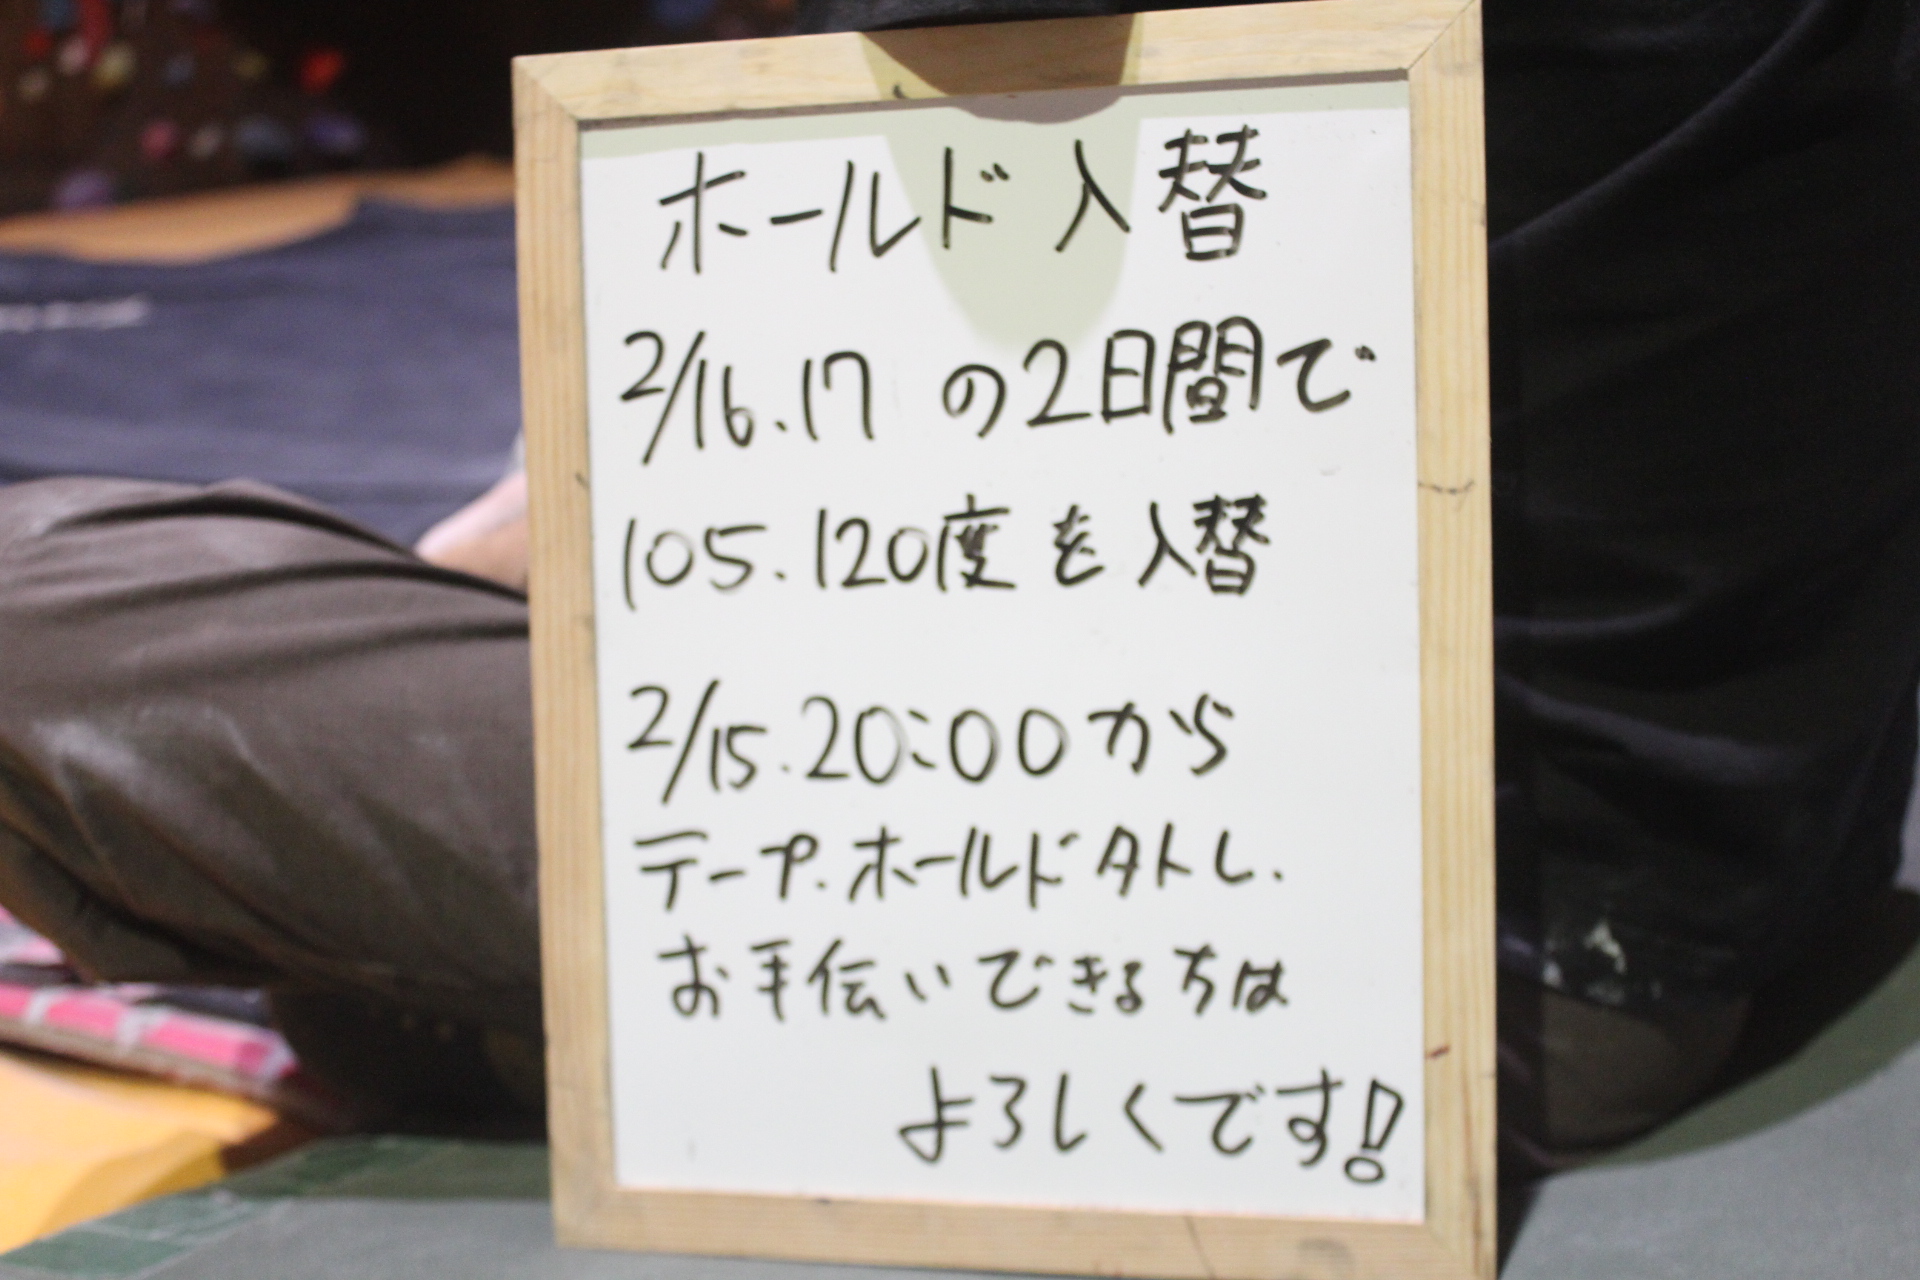 ホールド入替
2/16.17の2日間で
105.120度を入替
2/15.20:00から
テープ.ホールド外し.
お手伝いできる方は
よろしくです!